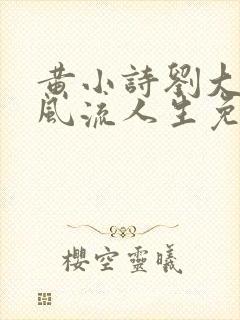 黄小詩劉大
風流人生免
櫻空靈曦